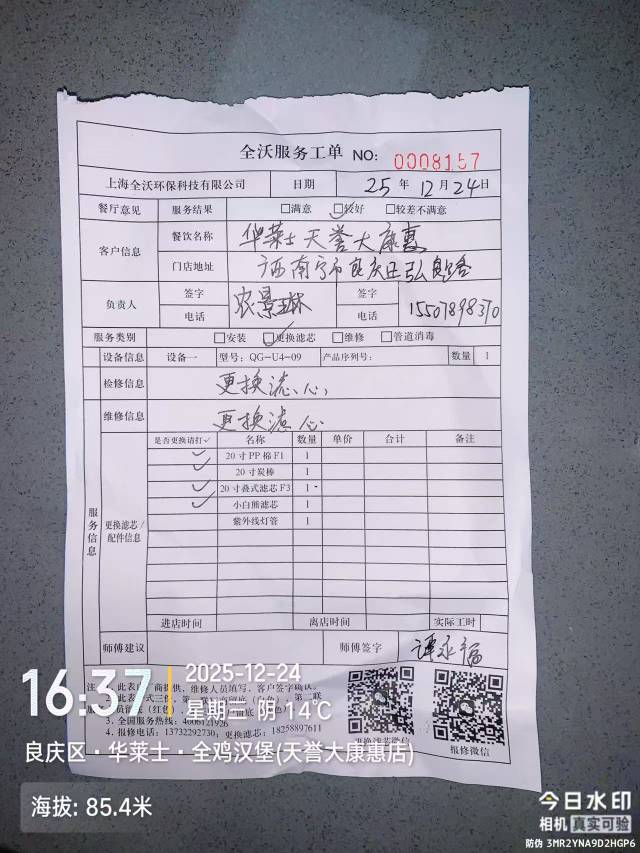 全沃服务工单 NO: 0008157
上海全沃环保科技有限公司 日期 25年12月24日
餐厅意见 服务结果 □满意 □较好 ✓ □较差不满意
客户信息 餐饮名称 华莱士天誉大康惠
门店地址 广西南宁市良庆区弘良路
负责人 签字 农景琳 签字
电话 电话 15507898370
服务类别 □安装 □更换滤芯 ✓ □维修 □管道消毒
设备信息 设备一 型号: QG-U4-09 产品序列号: 数量 1
检修信息 更换滤心,
维修信息 更换滤心
服务信息 更换滤芯/配件信息
是否更换请打✓ 名称 数量 单价 合计 备注
✓ 20寸PP棉F1 1
✓ 20寸炭棒 1
✓ 20寸叠式滤芯F3 1
✓ 小白熊滤芯 1
紫外线灯管 1
进店时间 离店时间 实际工时
师傅建议 师傅签字 谭永福
3.全国服务热线: 4006121926
4.报修电话: 13732292730; 更换滤芯: 18258897611
更换滤芯微信 报修微信
16:37 2025-12-24
星期三 阴 14℃
良庆区·华莱士·全鸡汉堡(天誉大康惠店)
海拔: 85.4米
今日水印
相机 真实可验
防伪 3MR2YNA9D2HGP6